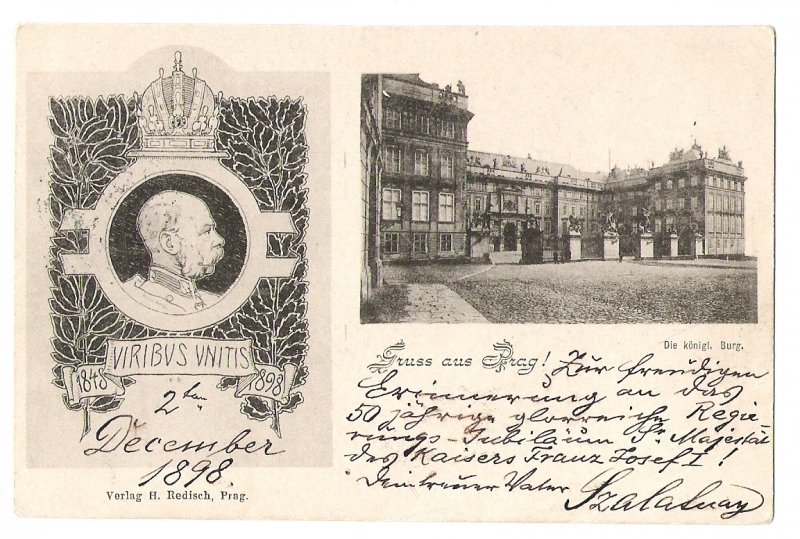 VIRIBVS VNITIS
1848
1898
V.S.
2ten
December
1898.
Verlag H. Redisch, Prag.
Die königl. Burg.
Gruss aus Prag!
Zur freudigen
Erinnerung an das
50 jährige glorreiche Regie
rungs-Jubiläum Sr. Majestät
des Kaisers Franz Josef I!
Dein treuer Vater